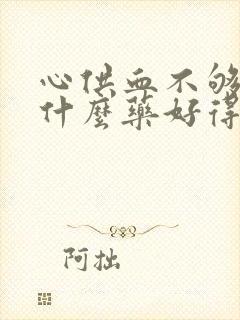 心供血不够
什麼藥好得
阿拙